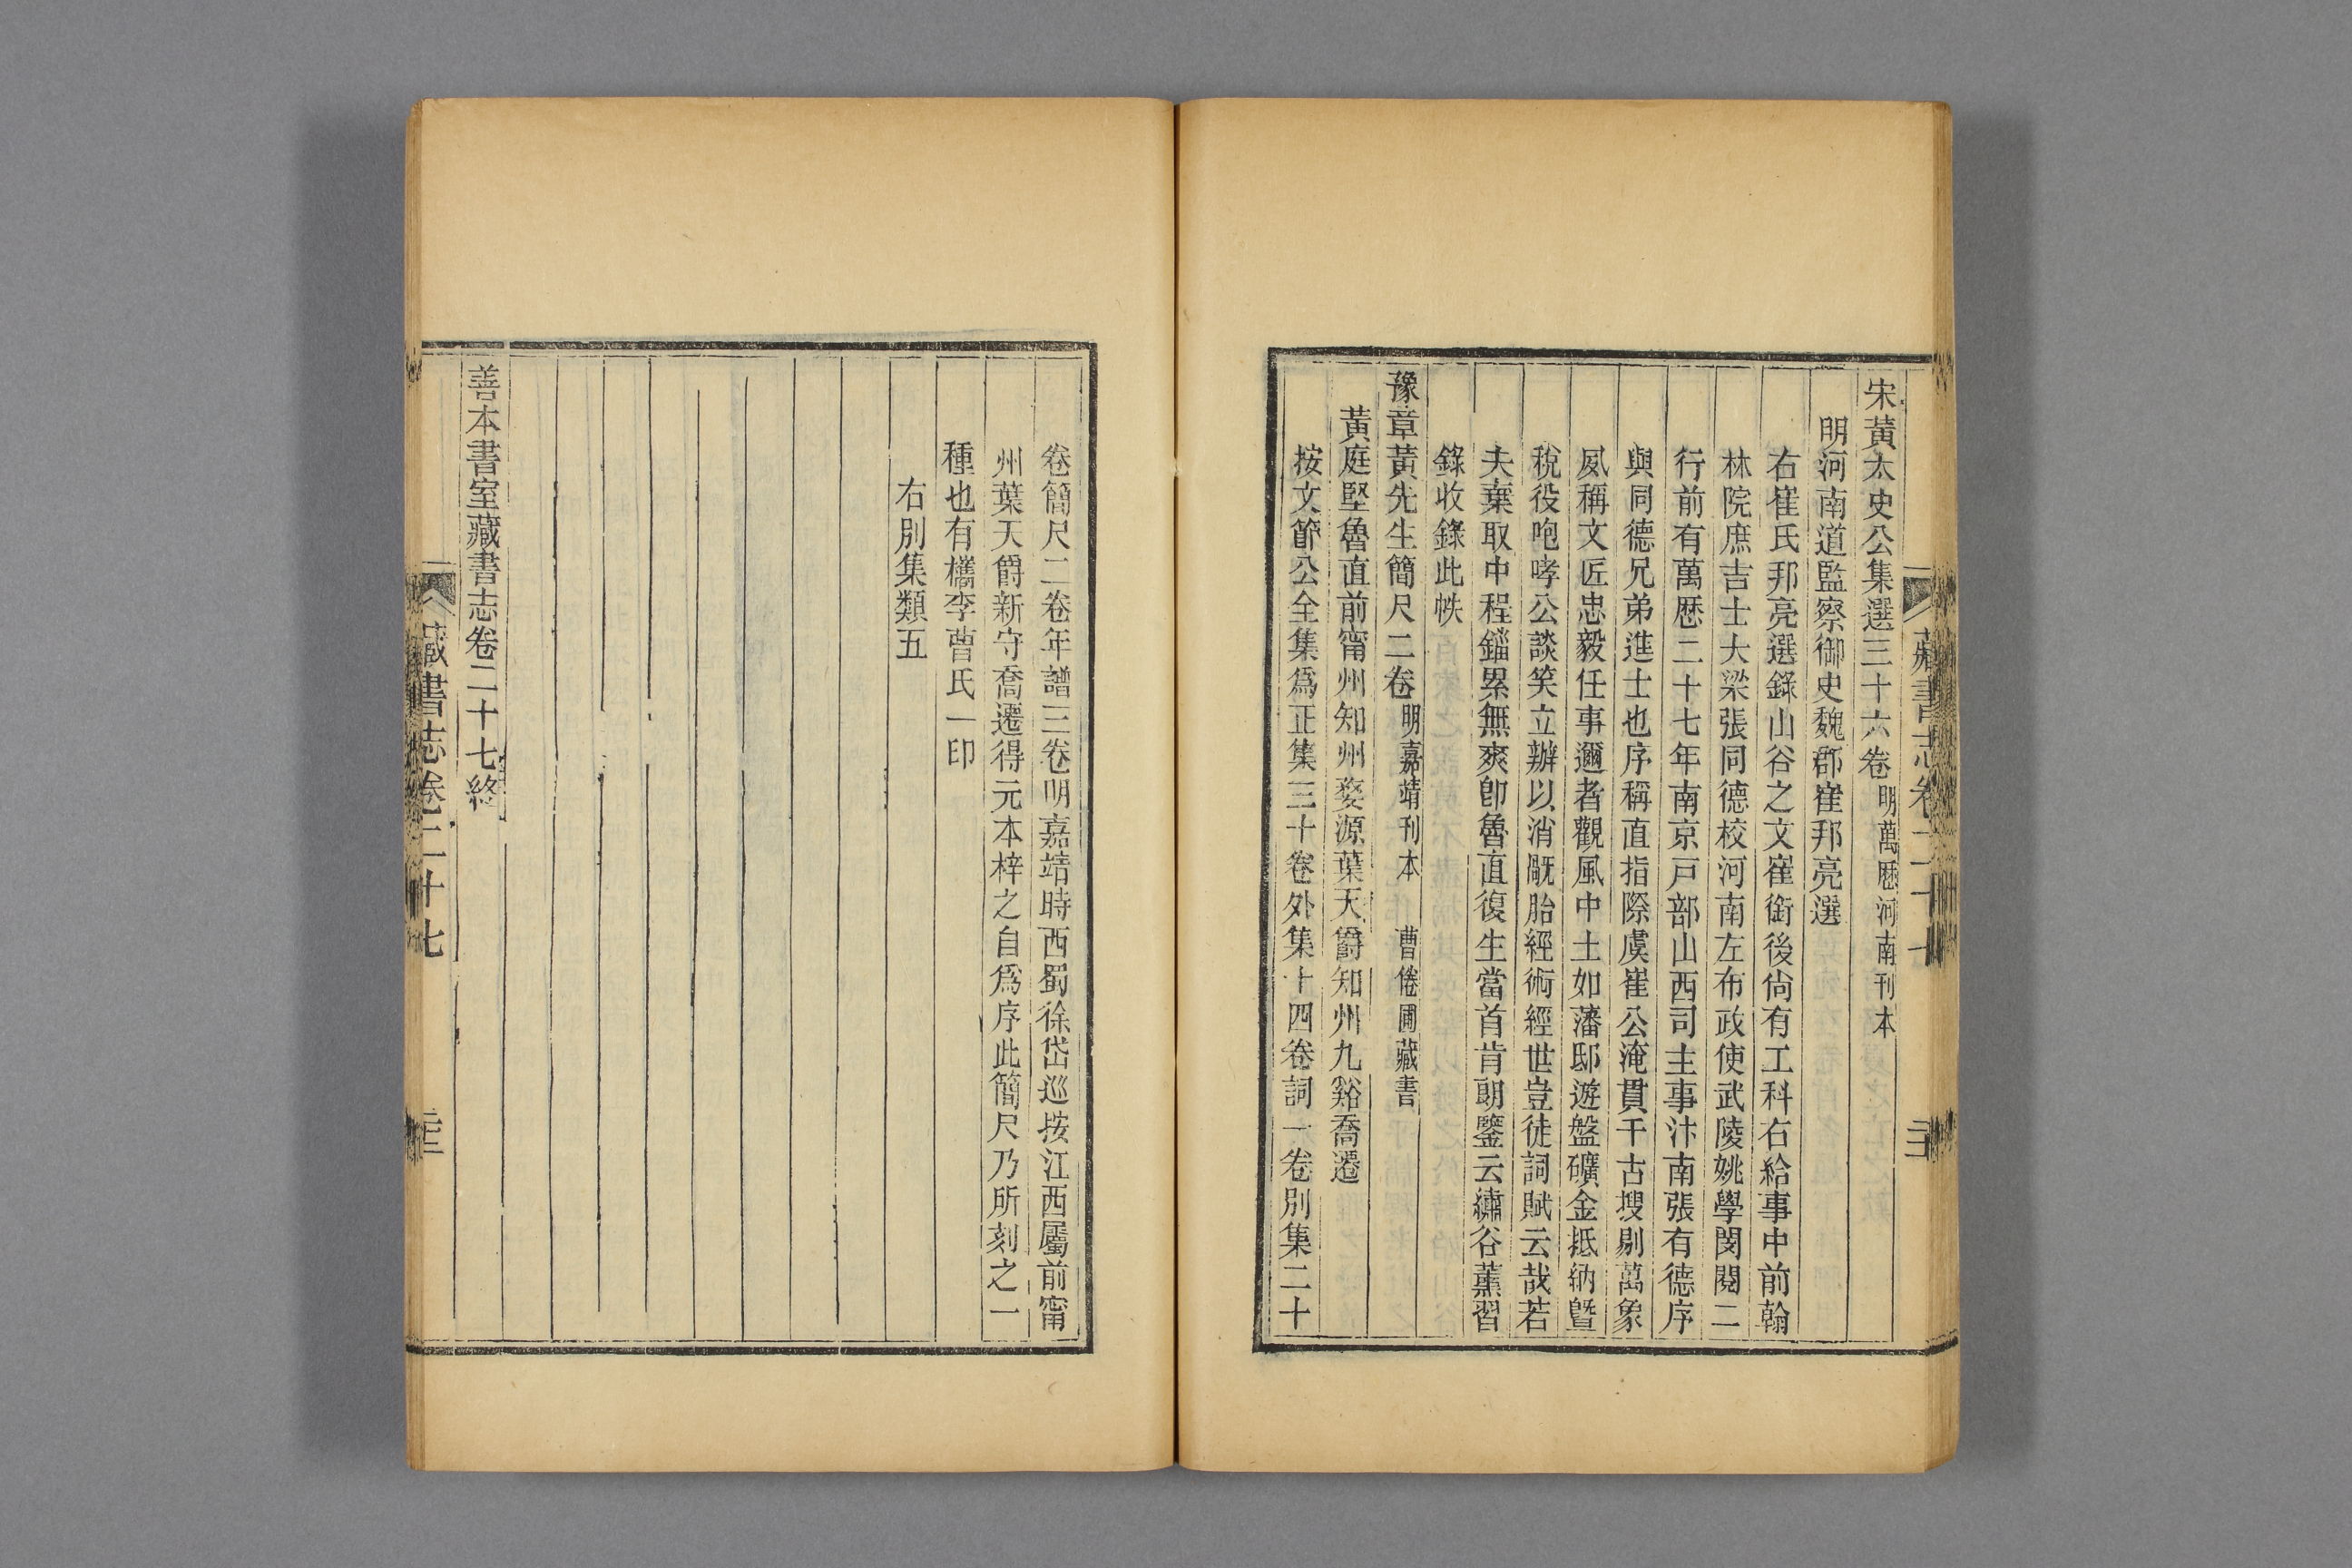 宋黃太史公集選三十六卷 明萬厯河南刊本
明河南道監察御史魏郡崔邦亮選
右崔氏邦亮選錄山谷之文崔銜後尚有工科右給事中前翰
林院庶吉士大梁張同德校河南左布政使武陵姚學閔閱二
行前有萬厯二十七年南京戸部山西司主事汴南張有德序
與同德兄弟進士也序稱直指際虞崔公淹貫千古搜剔萬象
夙稱文匠忠毅任事邇者觀風中土如藩邸遊盤礦金抵納曁
稅役咆哮公談笑立辦以消厥胎經術經世豈徒詞賦云哉若
夫棄取中程錙累無爽卽魯直復生當首肯朗鑒云繡谷薰習
錄收錄此帙
豫章黃先生簡尺二卷 明嘉靖刊本 曹倦圃藏書
黃庭堅魯直前甯州知州婺源葉天爵知州九谿喬遷
按文節公全集爲正集三十卷外集十四卷詞一卷別集二十
卷簡尺二卷年譜三卷明嘉靖時西蜀徐岱巡按江西屬前甯
州葉天爵新守喬遷得元本梓之自爲序此簡尺乃所刻之一
種也有檇李曹氏一印
右別集類五
善本書室藏書志卷二十七終
藏書志卷二十七